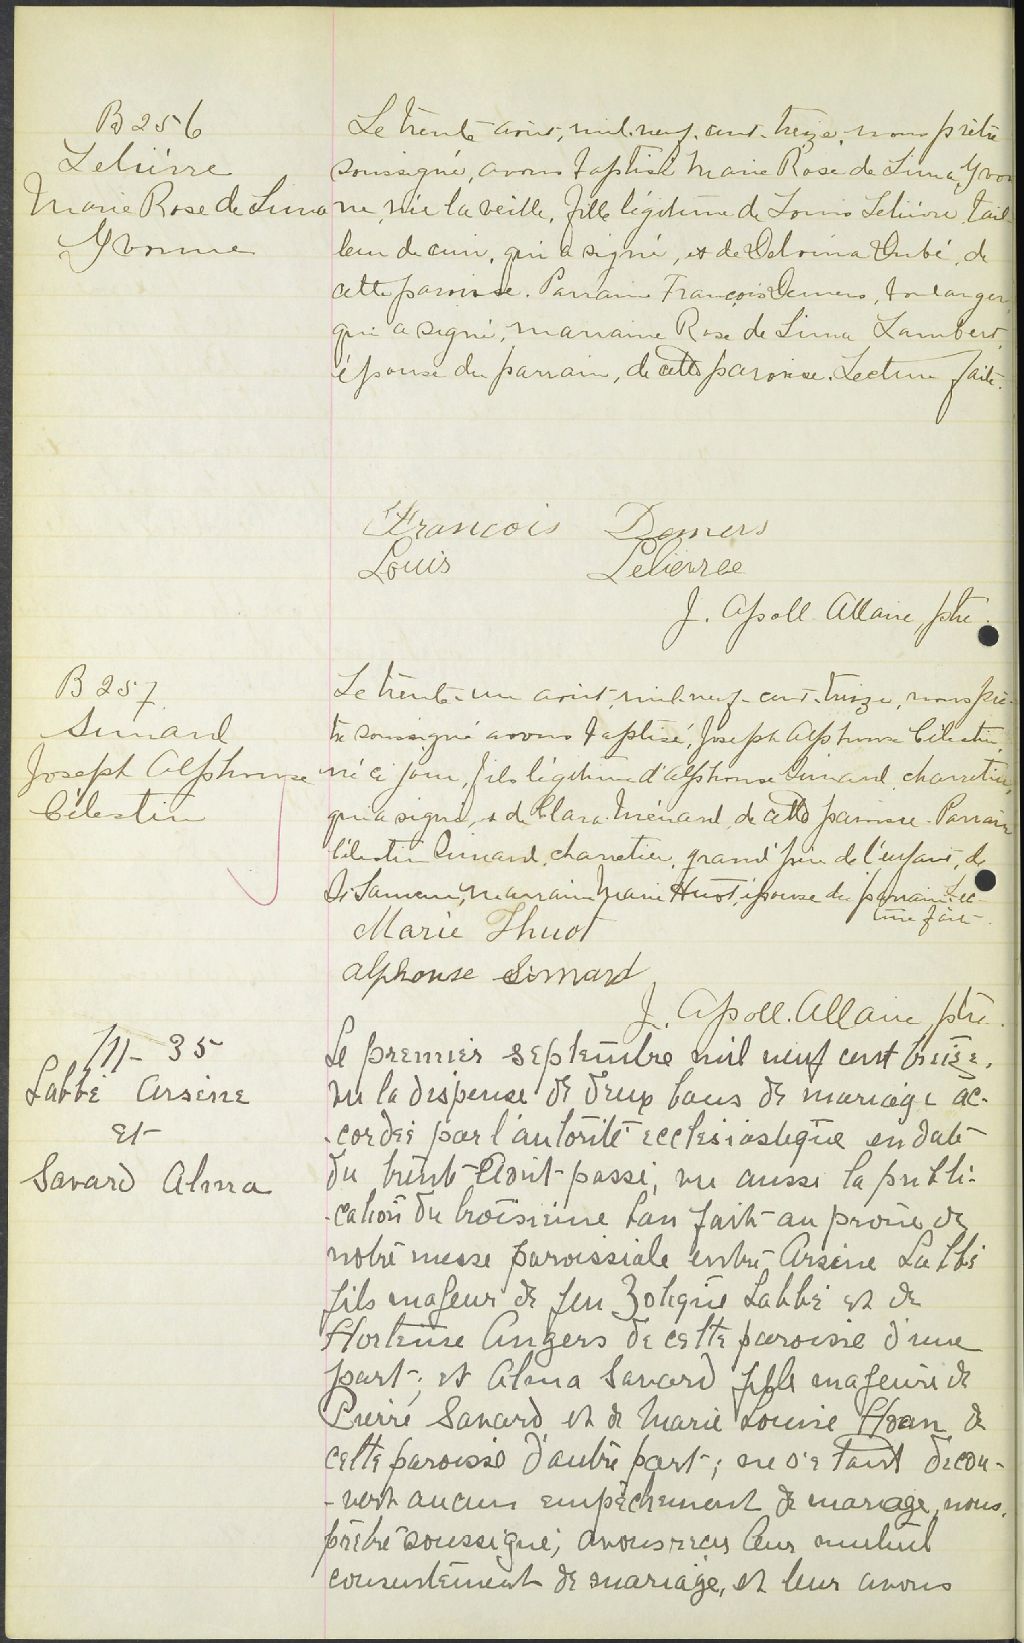 B 256
Lelièvre
Marie Rose de Lima
Yvonne
Le trente août, mil-neuf-cent-treize, nous prêtre
soussigné, avons baptisé Marie Rose de Lima Yvon
ne née la veille, fille légitime de Louis Lelièvre, tail-
leur de cuir, qui a signé, et de Delvina Dubé, de
cette paroisse. Parrain François Demers, boulanger,
qui a signé, marraine Rose de Lima Lambert,
épouse du parrain, de cette paroisse. Lecture faite.
François Demers
Louis Lelièvree
J. Apoll. Allaire, ptre.
B 257
Simard
Joseph Alphonse
Célestin
Le trente-un août, mil-neuf-cent-treize, nous prê-
tre soussigné avons baptisé, Joseph Alphonse Célestin,
né ce jour, fils légitime d'Alphonse Simard, charretier,
qui a signé, et de Clara Ménard, de cette paroisse. Parrain
Célestin Simard, charretier, grand'père de l'enfant, de
St Sauveur, marraine Marie Huot, épouse du parrain. Lec-
ture faite.
Marie Thuot
Alphonse Simard
J. Apoll. Allaire ptre.
M- 35
Labbé Arsène
et
Savard Alma
Le premier septembre mil neuf cent treize,
vu la dispense de deux bans de mariage ac-
-cordée par l'autorité ecclésiastique en date
du trente Août passé, vu aussi la publi-
-cation du troisième ban faite au prône de
notre messe paroissiale entre Arsène Labbé
fils majeur de feu Zotique Labbé et de
Hortense Angers de cette paroisse d'une
part; et Alma Savard fille majeure de
Pierre Savard et de Marie Louise de
cette paroisse d'autre part; ne s'étant décou-
-vert aucun empêchement de mariage, nous,
prêtre soussigné, avons reçu leur mutuel
consentement de mariage, et leur avons